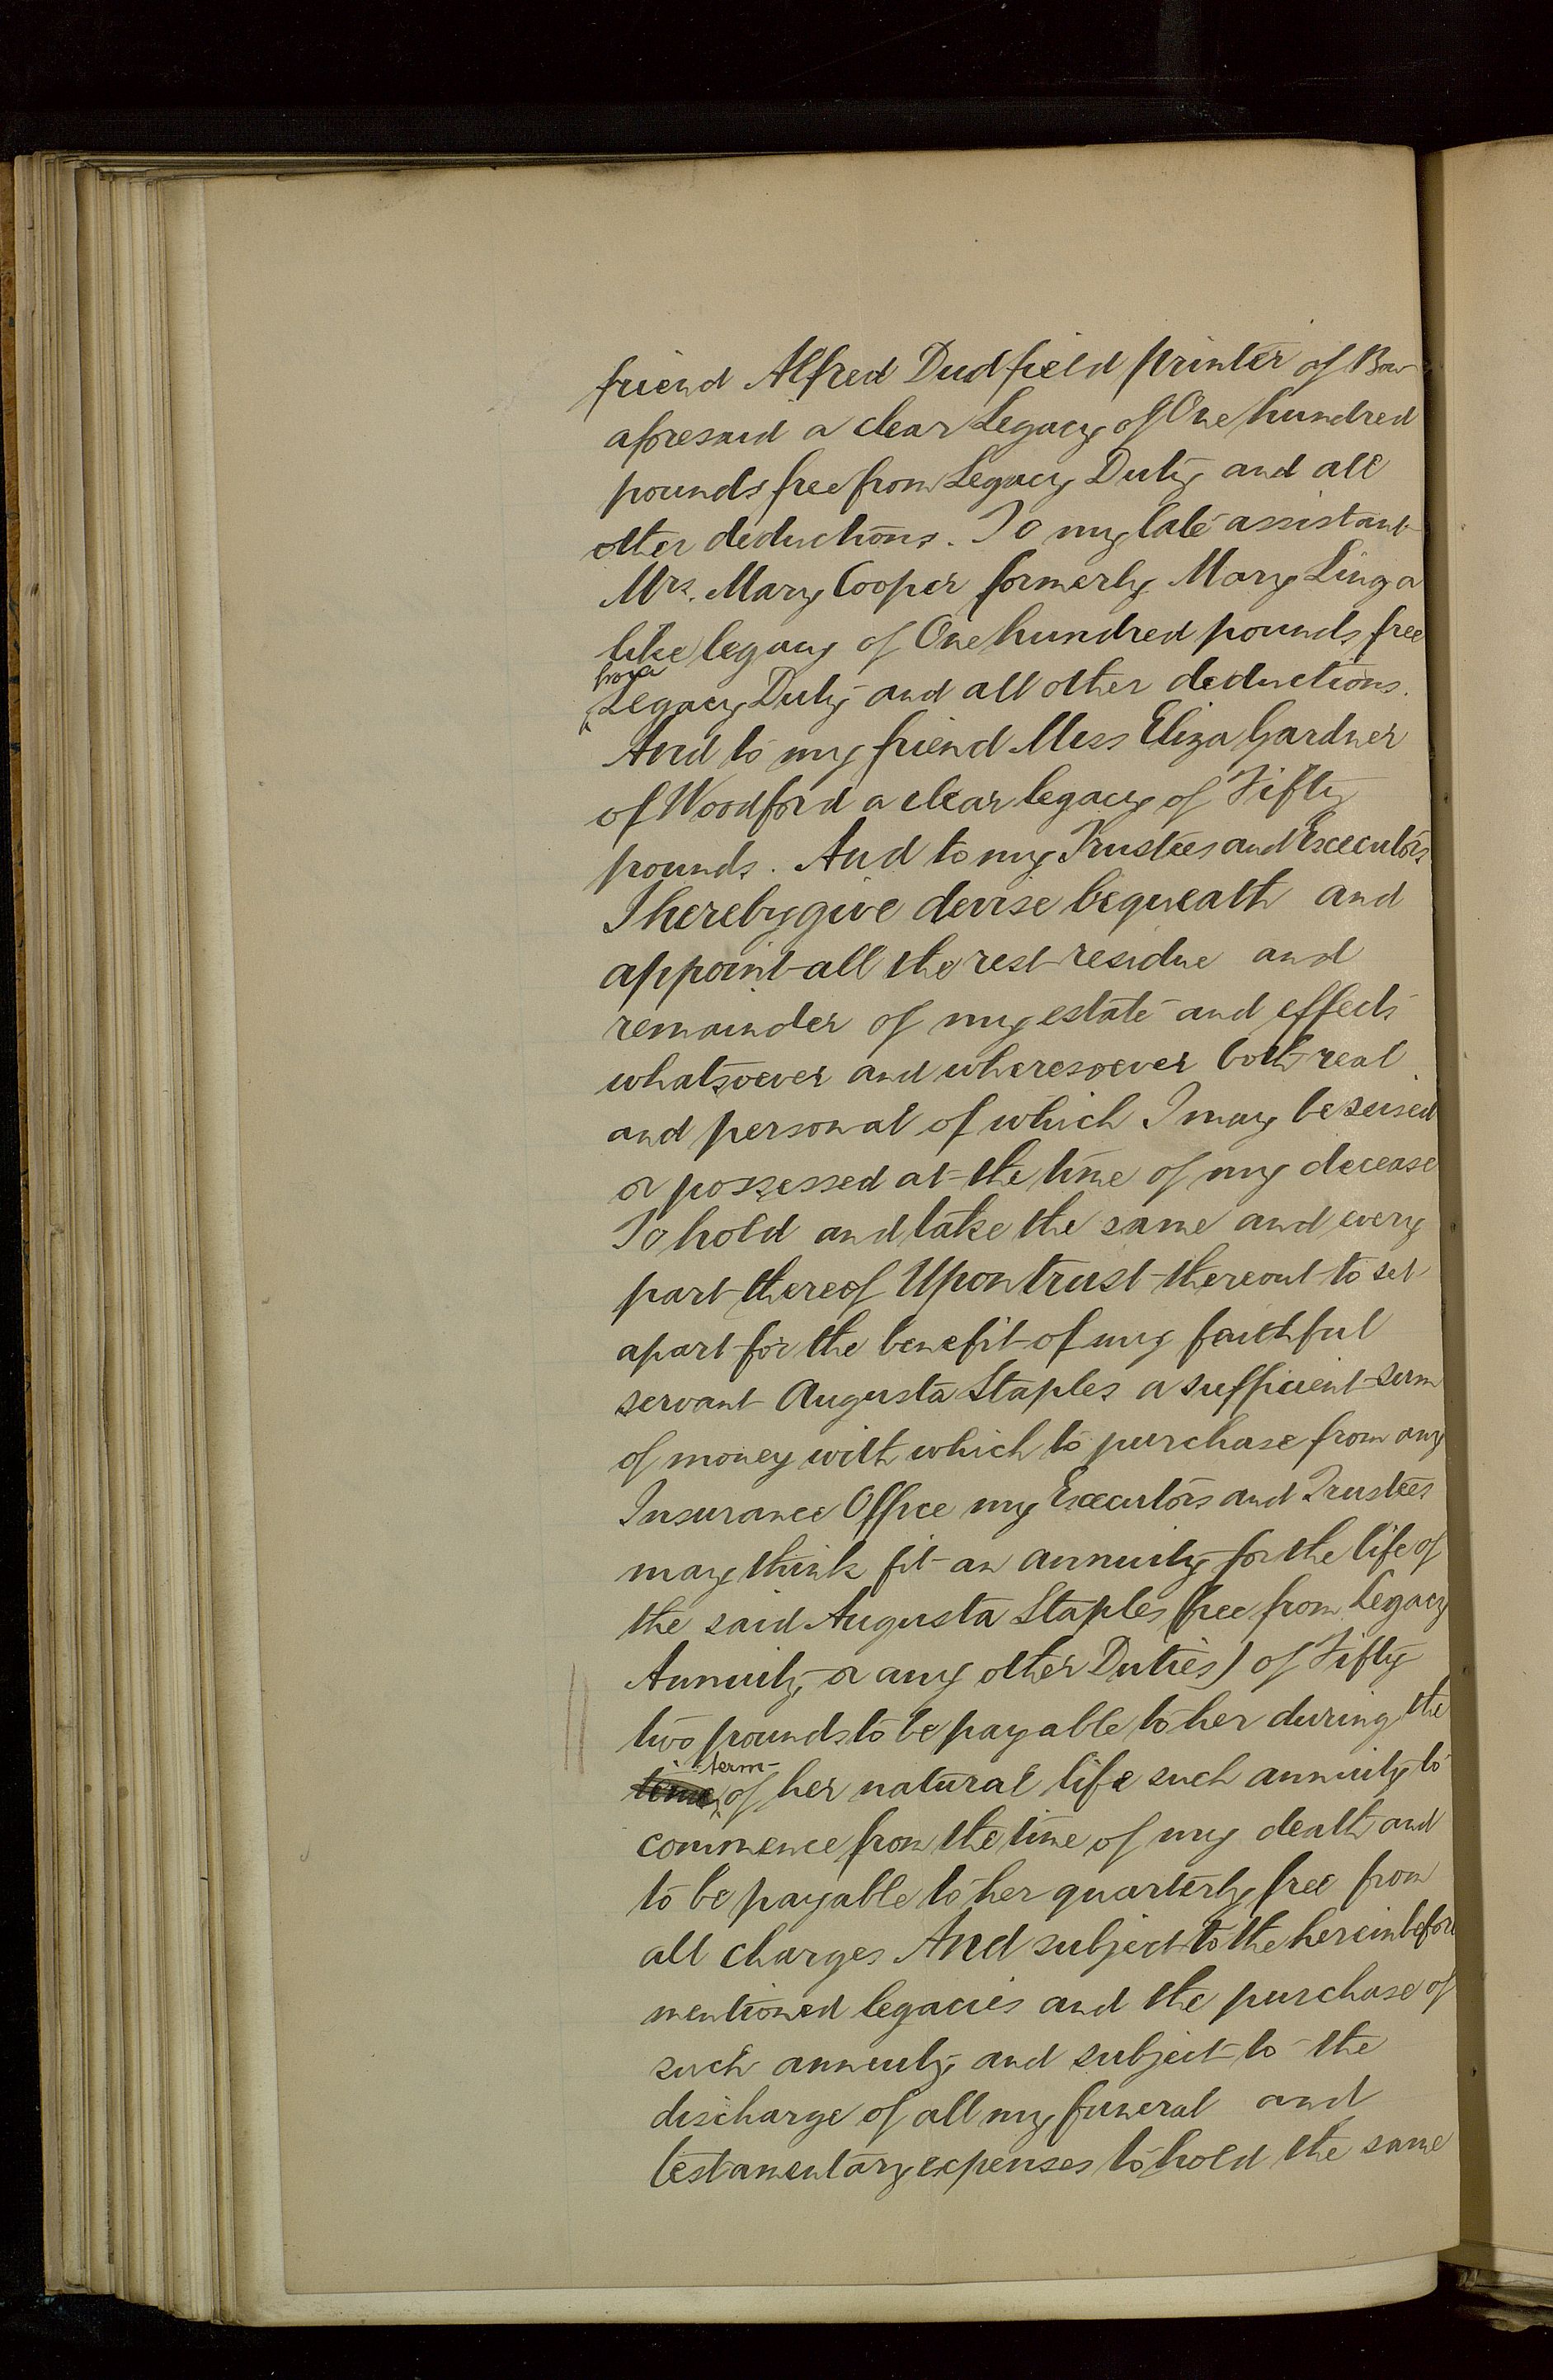 friend Alfred Dudfield printer of Bow
aforesaid a clear Legacy of One hundred
pounds free from Legacy Duty and all
other deductions. To my late assistant
Mrs. Mary Cooper formerly Mary Ling a
like legacy of One hundred pounds free
from
Legacy Duty and all other deductions.
And to my friend Miss Eliza Gardner
of Woodford a clear legacy of Fifty
pounds. And to my Trustees and Executors
I hereby give devise bequeath and
appoint all the rest residue and
remainder of my estate and effects
whatsoever and wheresoever both real
and personal of which I may be seised
or possessed at the time of my decease
To hold and take the same and every
part thereof Upon trust thereout to set
apart for the benefit of my faithful
servant Augusta Staples a sufficient sum
of money with which to purchase from any
Insurance Office my Executors and Trustees
may think fit an annuity for the life of
the said Augusta Staples (free from Legacy
Annuity or any other Duties) of Fifty
two pounds to be payable to her during the
term
time of her natural life such annuity to
commence from the time of my death and
to be payable to her quarterly free from
all charges And subject to the hereinbefore
mentioned legacies and the purchase of
such annuity and subject to the
discharge of all my funeral and
testamentary expenses to hold the same